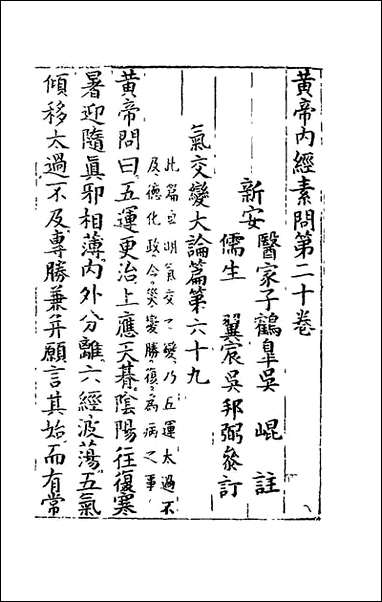 黃帝內經素問第二十卷
新安
醫家子鶴臯吳崐註
儒生翼宸吳邦弼叅訂
氣交變大論篇第六十九
此篇宣明氣交之變乃五運太過不
及德化政令災變勝復為病之事
黃帝問曰五運更治上應天朞陰陽徃復寒
暑迎隨眞邪相薄內外分離六經波蕩五氣
傾移太過不及專勝兼并願言其始而有常